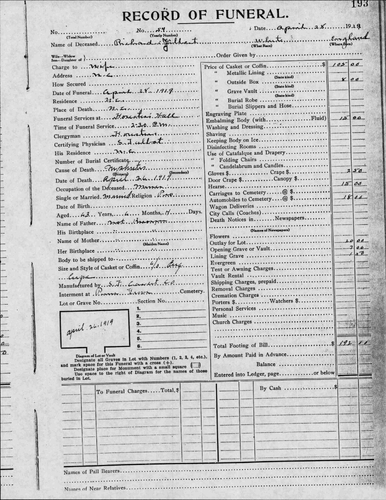 193
RECORD OF FUNERAL.
No. No. 59 Date, April 28, 1919
(Total Number) (Yearly Number)
Name of Deceased, Richard Gilbert White England
(What Race) (Where Born)
Order Given by
Charge to Wife
Address N.C.
How Secured
Date of Funeral April 28, 1919
Residence N.C.
Place of Death N.C.
Funeral Services at Hall
Time of Funeral Service 2:30 P.M.
Clergyman
Certifying Physician S. Talbot
His Residence N.C.
Number of Burial Certificate
Cause of Death Nephritis
Date of Death April 26, 1919
Occupation of the Deceased Miner
Single or Married Married Religion
Date of Birth
Aged 63 Years, 6 Months, 4 Days.
Name of Father not known
His Birthplace "
Name of Mother "
Her Birthplace "
Body to be shipped
Size and Style of Casket or Coffin
Manufactured by
Interment at Cemetery.
Lot or Grave No. Section No.
1.
2.
3.
4.
5.
6.
april 26 1919
Diagram of Lot or Vault
Designate all Graves in Lot with Numbers (1, 2, 3, 4, etc.), and mark space for this Funeral with a cross (+).
Designate place for Monument with a small square
Use space to the right of Diagram for the names of those buried in Lot.
Price of Casket or Coffin $ 105 00
" Metallic Lining
" Outside Box 8 00
" Grave Vault
" Burial Robe
" Burial Slippers and Hose
Engraving Plate
Embalming Body (with Fluid) 15 00
Washing and Dressing
Shaving
Keeping Body on Ice
Disinfecting Rooms
Use of Catafalque and Drapery
" Folding Chairs
" Candelabrum and Candles
Gloves $ Crape $ 2 50
Door Crape $ Canopy $
Hearse 15 00
Carriages to Cemetery @ $
Automobiles to Cemetery @ $ 18 00
Wagon Deliveries
City Calls (Coaches)
Death Notices in Newspapers
Flowers
Outlay for Lot
Opening Grave or Vault
Lining Grave
Evergreen
Tent or Awning Charges
Vault Rental
Shipping Charges, prepaid
Removal Charges
Cremation Charges
Porters $ Watchers $
Personal Services
Music
Church Charges
Total Footing of Bill $
By Amount Paid in Advance
Balance
Entered into Ledger, page or below.
To Funeral Charges, Total, $
By Cash $
Names of Pall Bearers.
Names of Near Relatives.